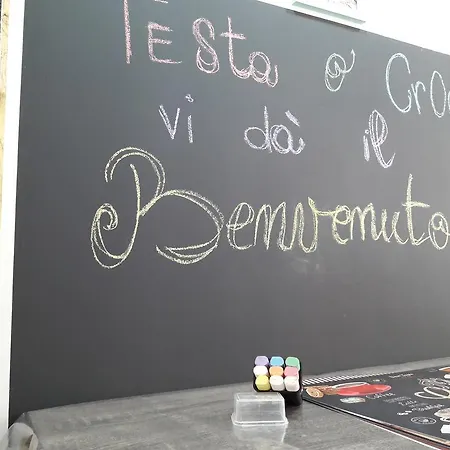 Testa o Cro
vi dà il
Benvenuto
Coffee